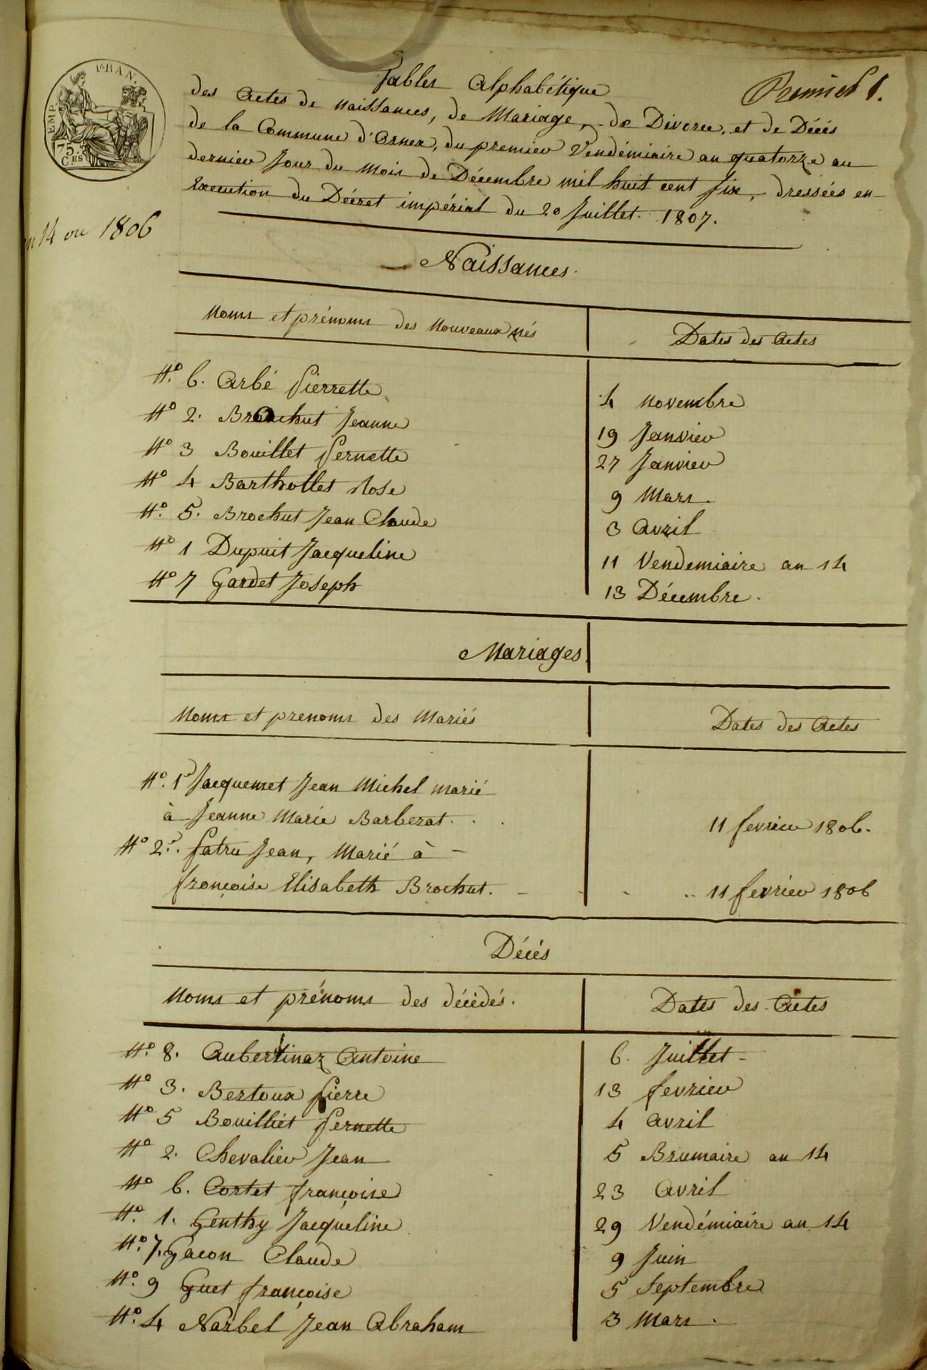 Tables Alphabétique
Premier 1.
des Actes de Naissances, de Mariage, de Divorce, et de Décés
de la Commune d'Ornex, du premier Vendémiaire an quatorze au
dernier Jour du Mois de Décembre mil huit cent six, dressées en
Execution du Décret impérial du 20 Juillet 1807.
14 ou 1806
Naissances.
Noms et prénoms des Nouveaux nés
Dates des Actes
N.º 6. Arbé Pierrette 4 Novembre
Nº 2. Brochut Jeanne 19 Janvier
Nº 3 Bouillet Pernette 27 Janvier
Nº 4 Barthollet Rose 9 Mars.
Nº. 5. Brochut Jean Claude 3 Avril
Nº 1 Dupuit Jacqueline 11 Vendemiaire an 14
Nº 7 Gardet Joseph 13 Décembre.
Mariages
Noms et prenoms des Mariés
Dates des Actes
Nº. 1 Jacquemet Jean Michel marié
à Jeanne Marie Barbezat. . . 11 fevrier 1806.
Nº 2. Patru Jean, Marié à –
françoise Elisabeth Brochut. 11 fevrier 1806
Décés
Noms et prénoms des décédés.
Dates des Actes
Nº. 8. Aubertinaz Antoine 6. Juillet
Nº 3. Bertoux Pierre 13 fevrier
Nº 5 Bouilliet Pernette 4 Avril
Nº 2. Chevalier Jean 5 Brumaire an 14
Nº 6. Cortet françoise 23 Avril
Nº. 1. Genthy Jacqueline 29 Vendémiaire an 14
Nº. 7. Gacon Claude 9 Juin
Nº. 9 Guet françoise 5 Septembre
Nº. 4 Narbel Jean Abraham 3 Mars.